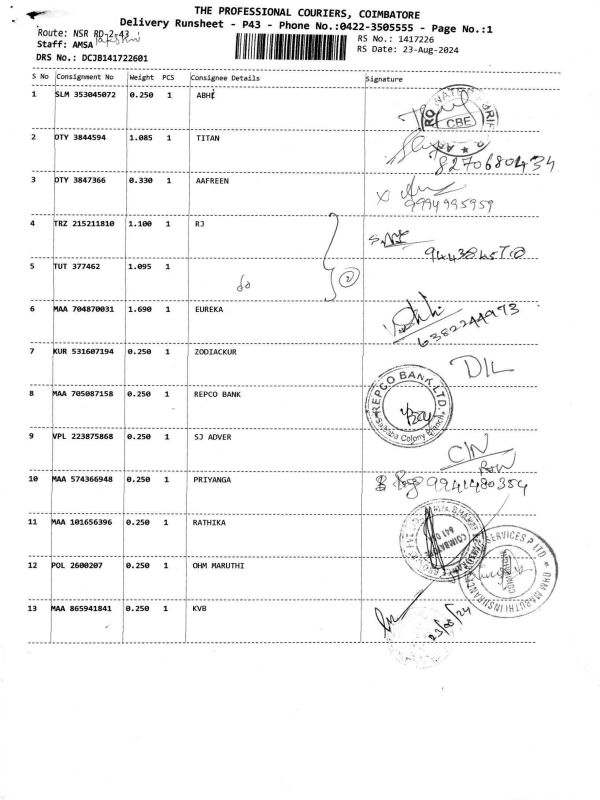 THE PROFESSIONAL COURIERS, COIMBATORE
Delivery Runsheet - P43 - Phone No.:0422-3505555 - Page No.:1
Route: NSR RD-2-43
RS No.: 1417226
Staff: AMSA
RS Date: 23-Aug-2024
DRS No.: DCJB141722601
S No Consignment No Weight PCS Consignee Details Signature
1 SLM 353045072 0.250 1 ABHI
CBE
2 DTY 3844594 1.085 1 TITAN
8270680434
3 DTY 3847366 0.330 1 AAFREEN
9994995959
4 TRZ 215211810 1.100 1 RJ
5 TUT 377462 1.095 1
do
2
6 MAA 704870031 1.690 1 EUREKA
6382244973
7 KUR 531607194 0.250 1 ZODIACKUR
DIL
8 MAA 705087158 0.250 1 REPCO BANK
REPCO BANK LTD.
Saibaba Colony Branch
9 VPL 223875868 0.250 1 SJ ADVER
10 MAA 574366948 0.250 1 PRIYANGA
9941480354
11 MAA 101656396 0.250 1 RATHIKA
COIMBATORE
641 0
12 POL 2600207 0.250 1 OHM MARUTHI
OHM MARUTHI INSURANCE SERVICES P LTD
13 MAA 865941841 0.250 1 KVB
23/08/24